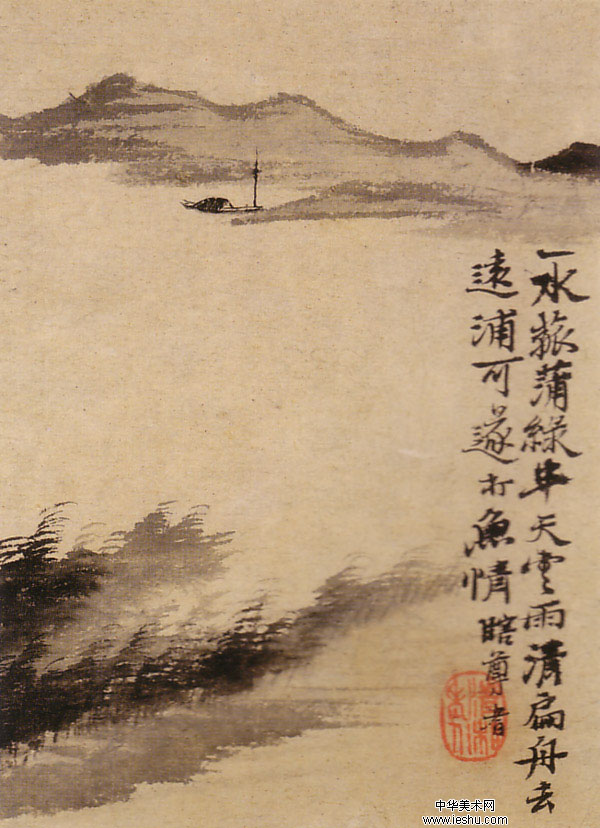 一水菰蒲綠半天雲雨清扁舟去
遠浦可遂打魚情 瞎尊者
中华美术网
www.ieshu.com